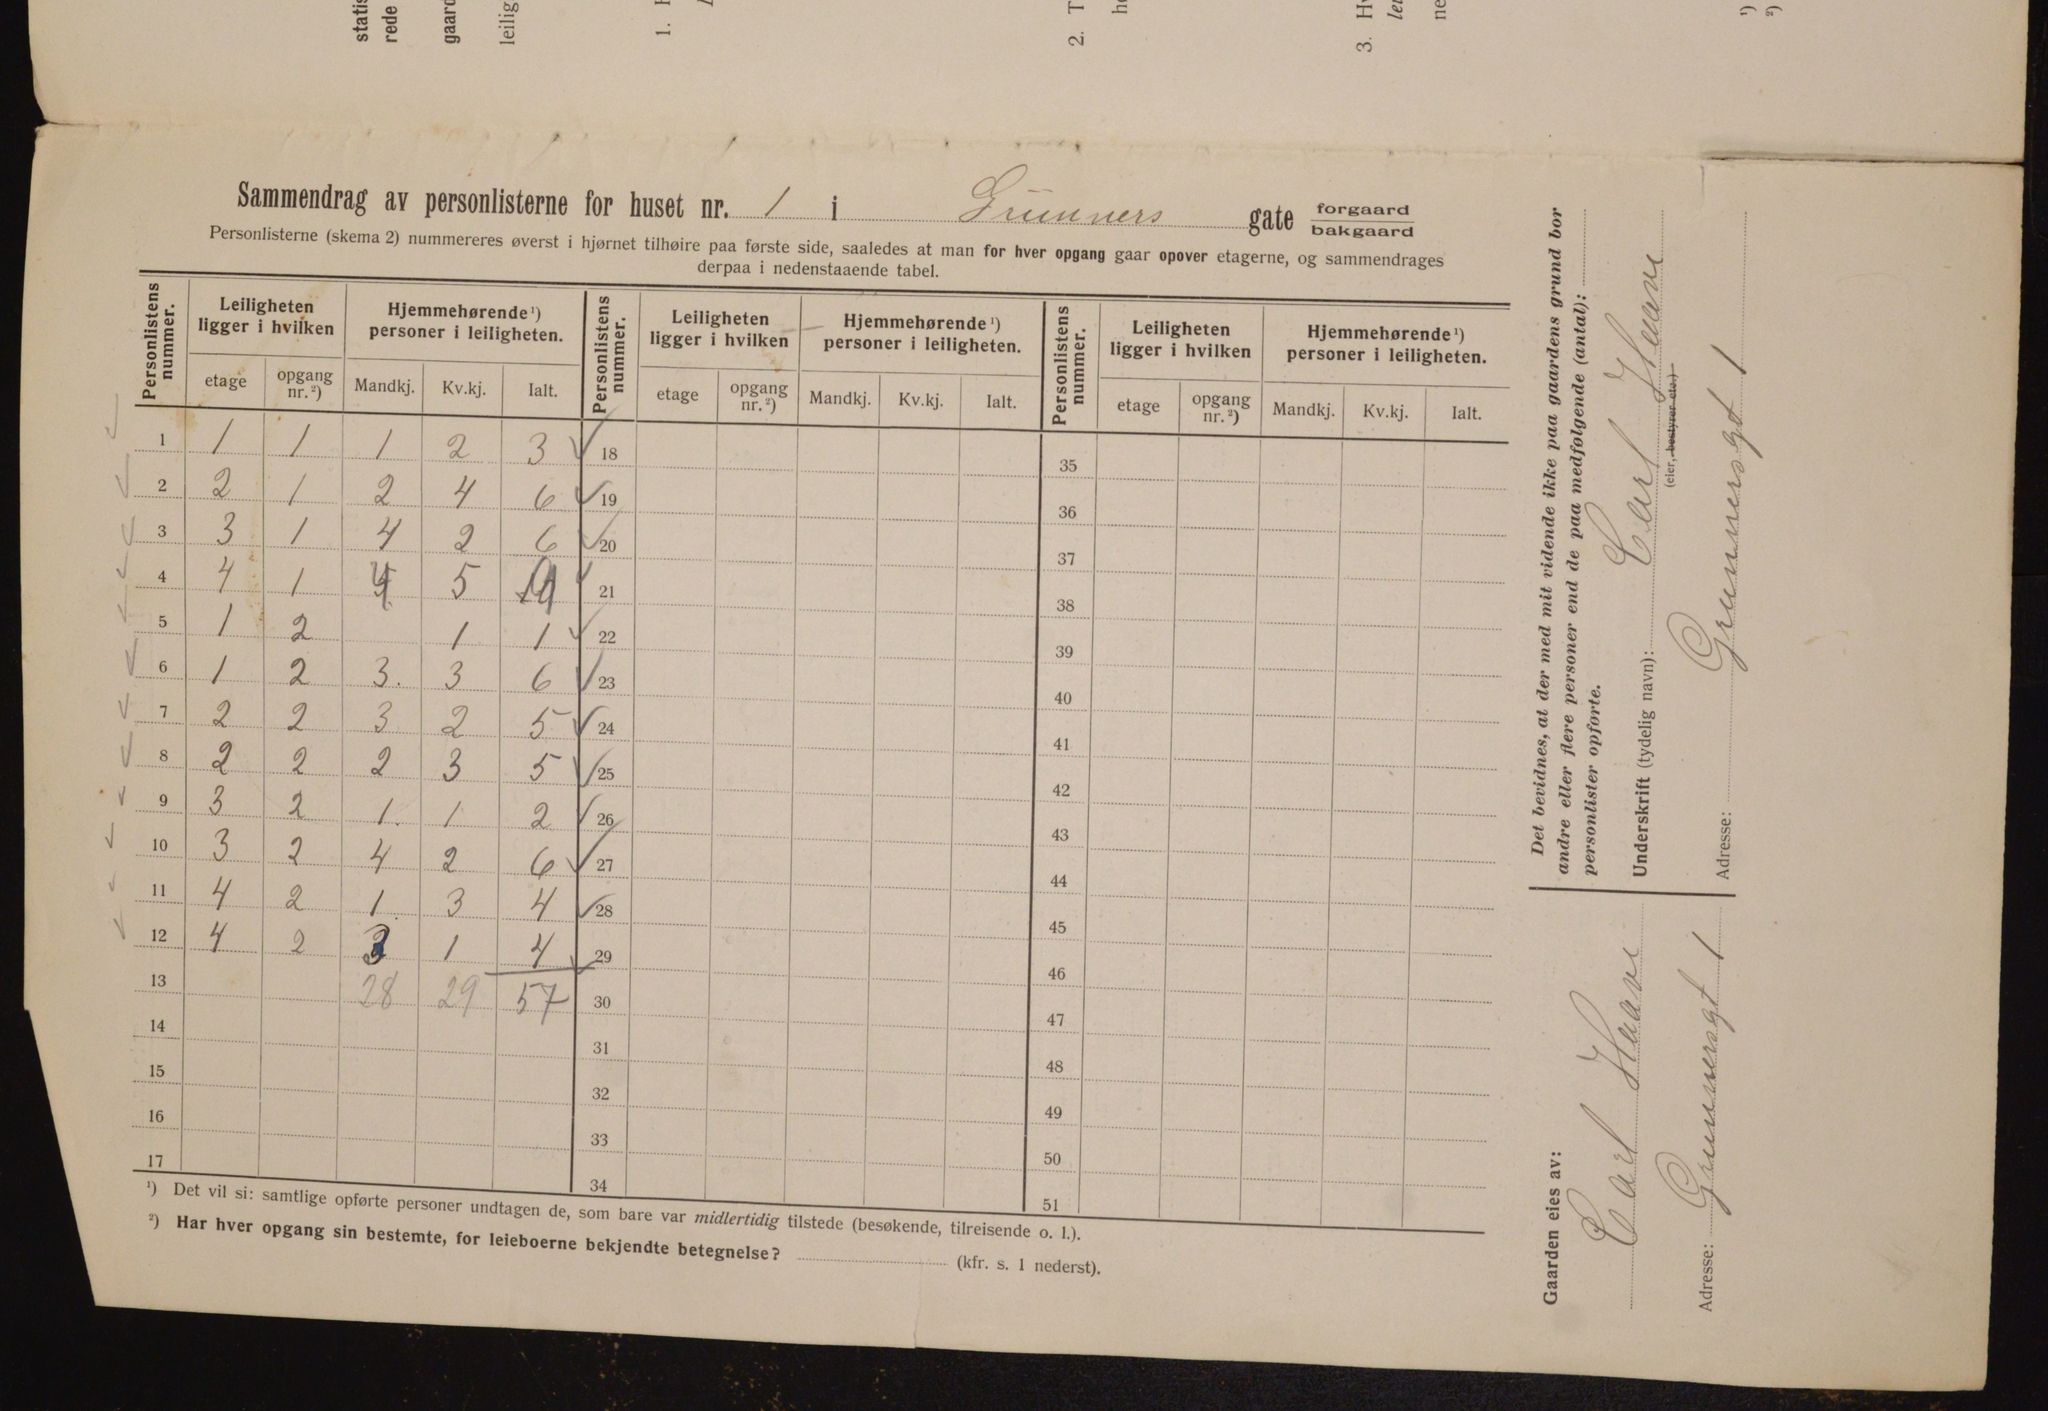 statis
rede
gaard
leilig
1. H
2. T
he
3. Hv
lei
ne
¹)
²)
Sammendrag av personlisterne for huset nr. 1 i Grünners gate forgaard
bakgaard
Personlisterne (skema 2) nummereres øverst i hjørnet tilhøire paa første side, saaledes at man for hver opgang gaar opover etagerne, og sammendrages
derpaa i nedenstaaende tabel.
Personlistens nummer. Leiligheten ligger i hvilken Hjemmehørende¹) personer i leiligheten. Personlistens nummer. Leiligheten ligger i hvilken Hjemmehørende¹) personer i leiligheten. Personlistens nummer. Leiligheten ligger i hvilken Hjemmehørende¹) personer i leiligheten.
etage opgang nr.²) Mandkj. Kv.kj. Ialt. etage opgang nr.²) Mandkj. Kv.kj. Ialt. etage opgang nr.²) Mandkj. Kv.kj. Ialt.
1 1 1 1 2 3 ✓ 18 35
2 2 1 2 4 6 ✓ 19 36
3 3 1 4 2 6 ✓ 20 37
4 4 1 4 5 9 ✓ 21 38
5 1 2 1 1 ✓ 22 39
6 1 2 3. 3 6 ✓ 23 40
7 2 2 3 2 5 ✓ 24 41
8 2 2 2 3 5 ✓ 25 42
9 3 2 1. 1 2 ✓ 26 43
10 3 2 4 2 6 ✓ 27 44
11 4 2 1. 3 4 ✓ 28 45
12 4 2 3 1 4 ✓ 29 46
13 28 29 57 30 47
14 31 48
15 32 49
16 33 50
17 34 51
¹) Det vil si: samtlige opførte personer undtagen de, som bare var midlertidig tilstede (besøkende, tilreisende o. l.).
²) Har hver opgang sin bestemte, for leieboerne bekjendte betegnelse? (kfr. s. 1 nederst).
Det bevidnes, at der med mit vidende ikke paa gaardens grund bor
andre eller flere personer end de paa medfølgende (antal):
personlister opførte.
Underskrift (tydelig navn): Carl Haave
(eier, bestyrer etc.)
Adresse: Grünnersgt 1
Gaarden eies av:
Carl Haave
Adresse: Grünnersgt 1